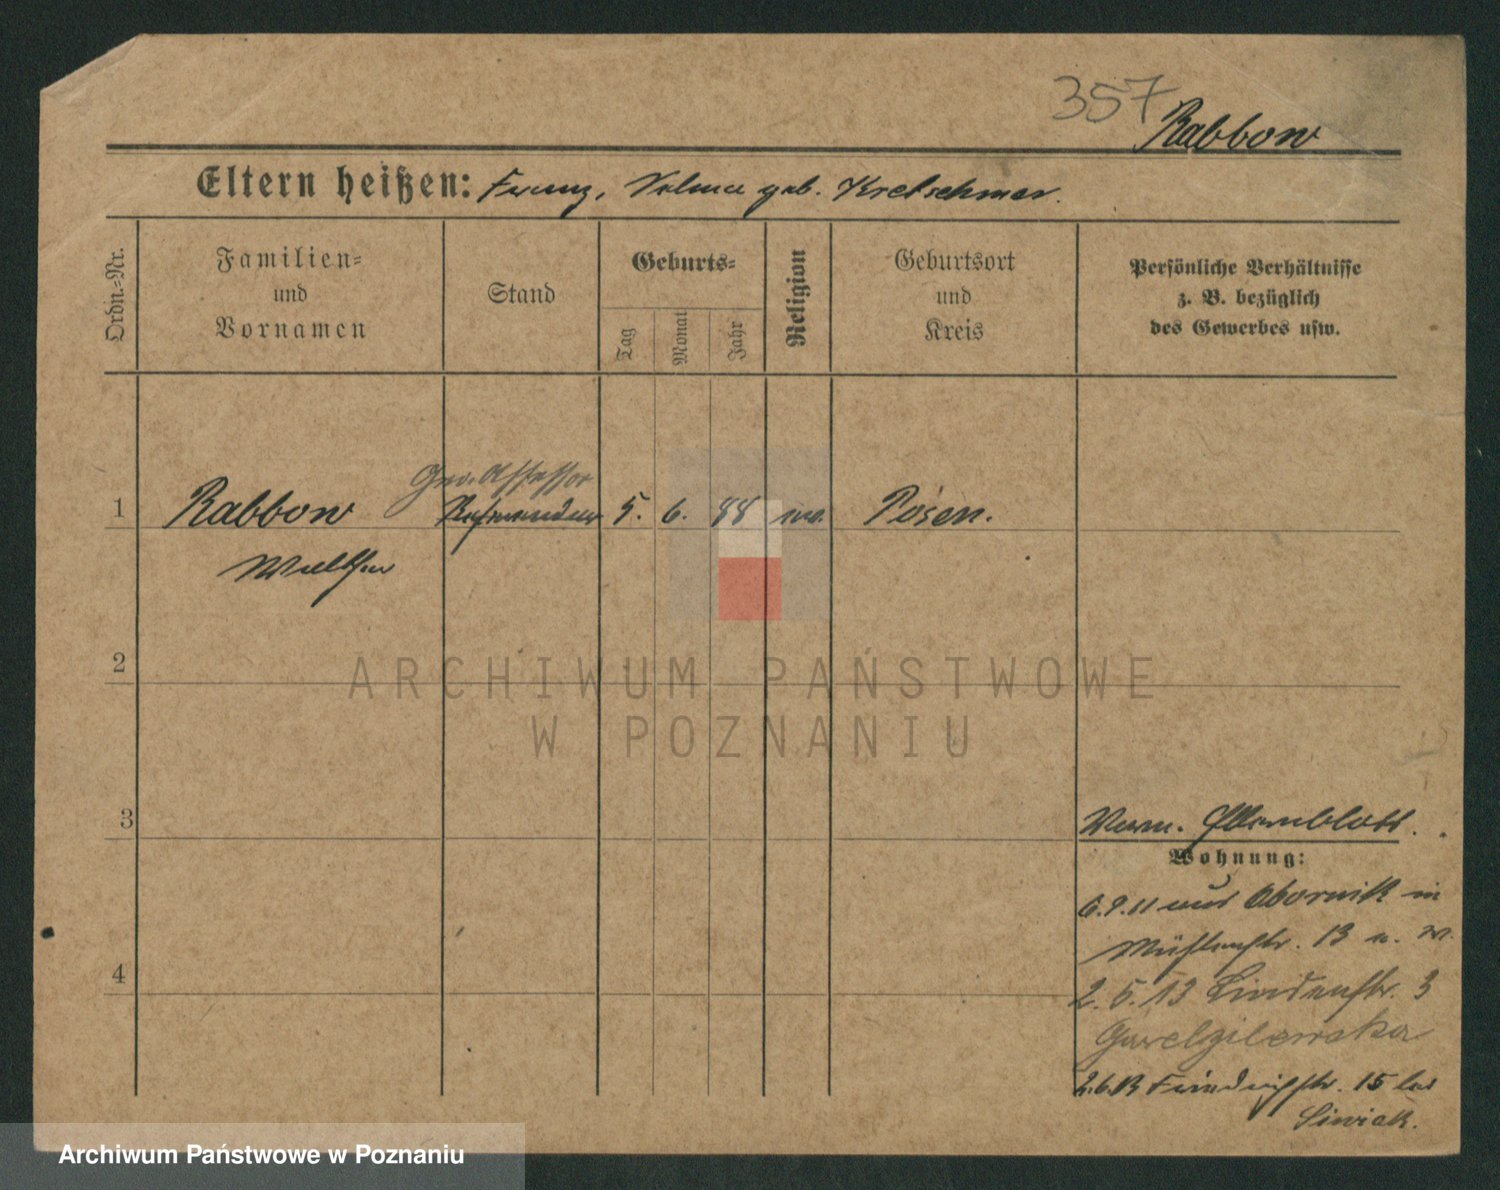 357
Rabbow
Eltern heißen: Franz, Selma geb. Kretschmer.
Ordn.-Nr.
Familien-
und
Vornamen
Stand
Geburts-
Tag
Monat
Jahr
Religion
Geburtsort
und
Kreis
Persönliche Verhältnisse
z. B. bezüglich
des Gewerbes usw.
Assessor
1 Rabbow Referendar 5. 6. 88 Posen.
Walther
2
ARCHIWUM PAŃSTWOWE
W POZNANIU
3
Elternblatt.
Wohnung:
6.9.11 aus Obornik in
Mühlenstr. 13
4
2.5.13 Lindenstr. 3
2.6.13 Friedrichstr. 15 bei
Siwiak.
Archiwum Państwowe w Poznaniu